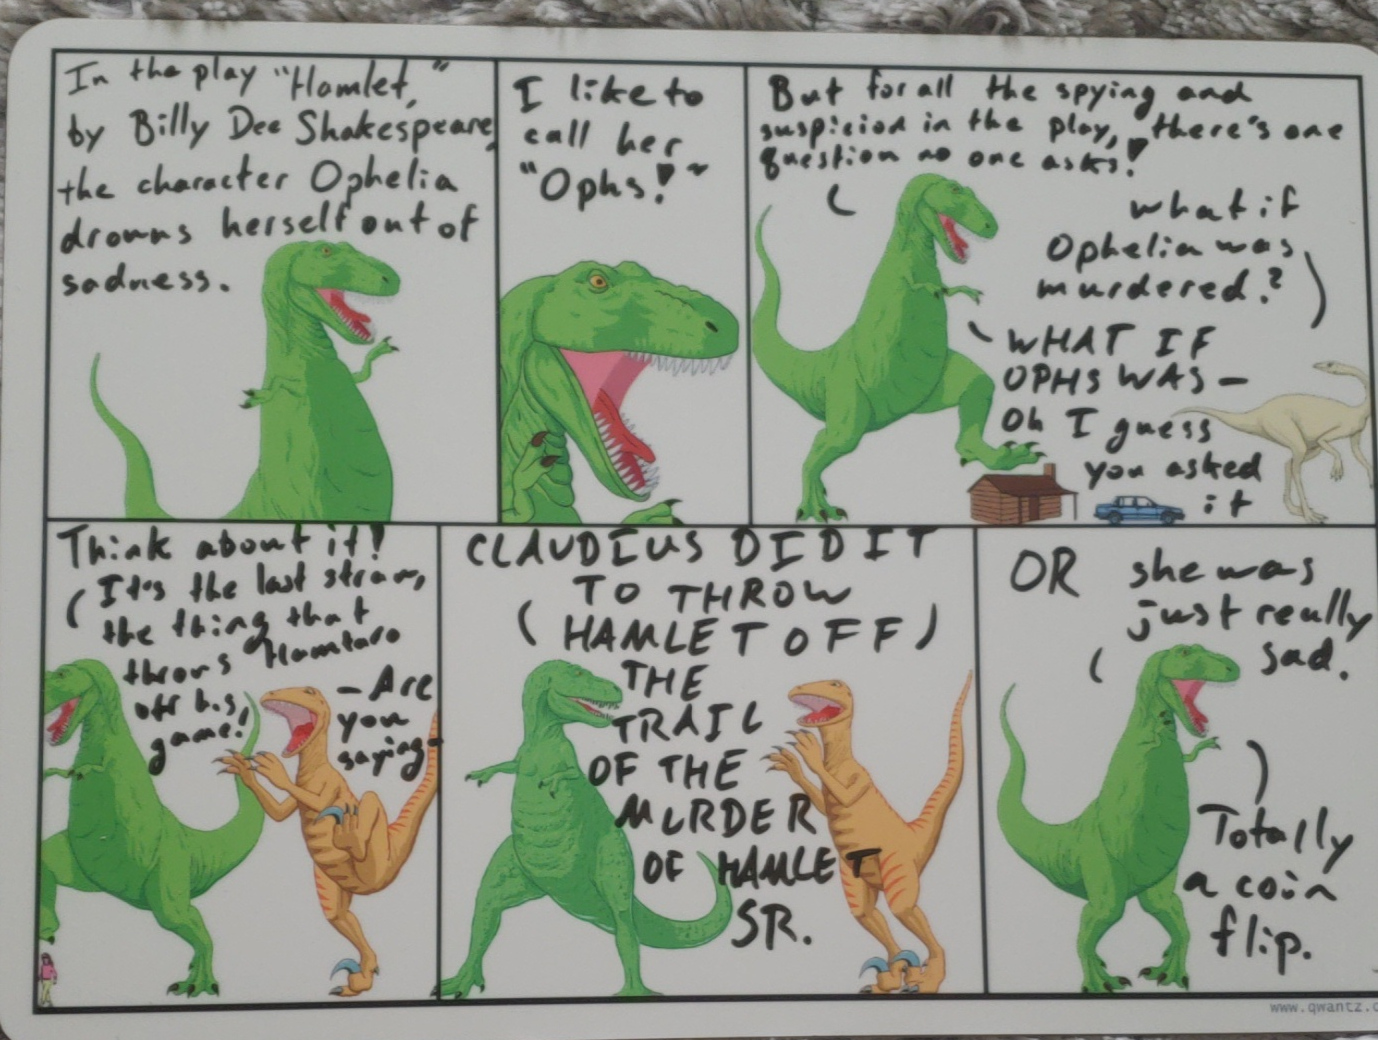 In the play "Hamlet,"
by Billy Dee Shakespeare,
the character Ophelia
drowns herself out of
sadness.
I like to
call her
"Ophs!"
But for all the spying and
suspicion in the play, there's one
question no one asks!
What if
Ophelia was
murdered?
WHAT IF
OPHS WAS —
Oh I guess
you asked
it
Think about it!
It's the last straw,
the thing that
throws Hamtaro
off his
game!
- Are
you
saying-
CLAUDIUS DID IT
TO THROW
HAMLET OFF
THE
TRAIL
OF THE
MURDER
OF HAMLET
SR.
OR she was
just really
sad.
Totally
a coin
flip.